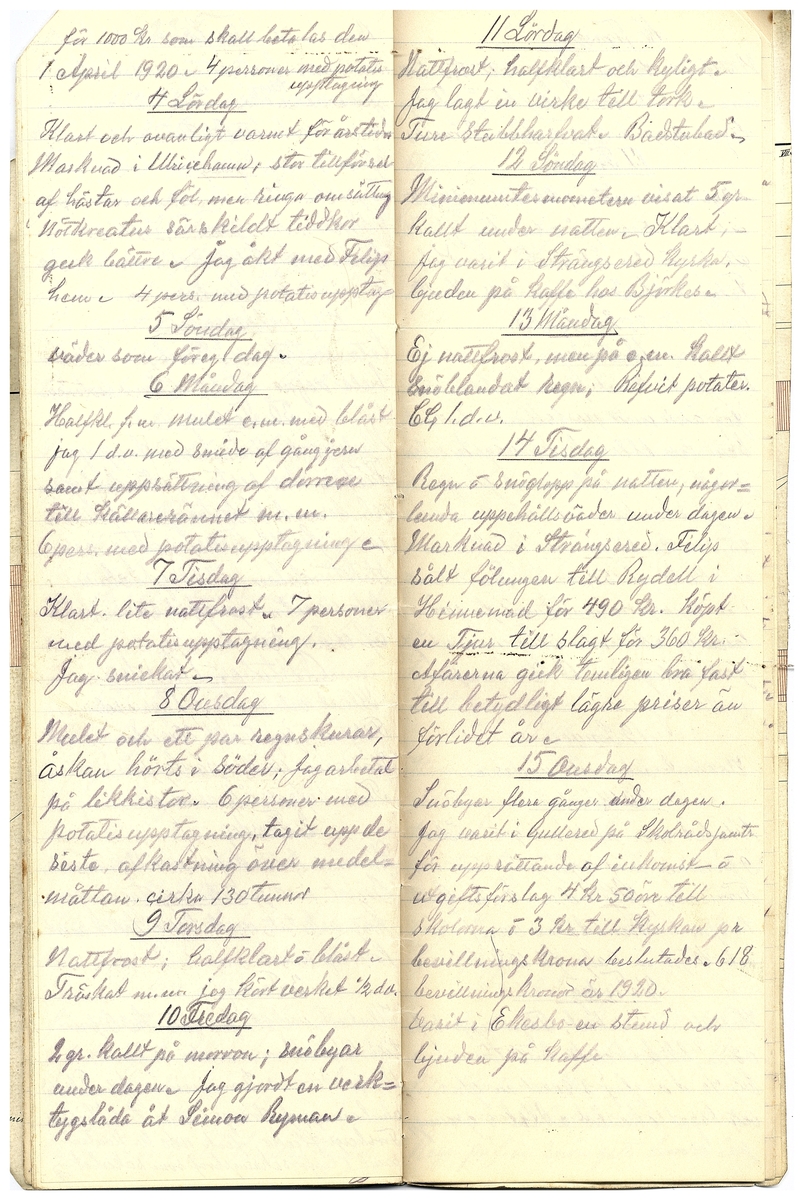 för 1000 kr som skall betalas den
1 April 1920. 4 personer med potatis
upptagning
4 Lördag
Klart och ovanligt varmt för årstiden
Marknad i Ulricehamn, stor tillförsel
af hästar och föl, men ringa omsättning
Nötkreatur särskildt tiddkor
geck bättre. Jag åkt med Filip
hem. 4 pers. med potatisupptag
5 Söndag
väder som föreg. dag.
6 Måndag
Halfkl. f.m. mulet e.m. med blåst
jag 1 d.v. med smide af gångjern
samt uppsättning af dörrene
till källarerännet m.m.
6 pers. med potatisupptagning
7 Tisdag
Klart. lite nattfrost. 7 personer
med potatisupptagning.
Jag snickat.
8 Onsdag
Mulet och ett par regnskurar,
åskan hörts i söder; jag arbetat
på likkistor. 6 personer med
potatisupptagning, tagit upp de
siste, afkastning över medel=
måttan. cirka 130 tunnor
9 Torsdag
Nattfrost; halfklart o blåst.
Tröskat m.m. jag kört verket ½ d.v.
10 Fredag
2 gr. kallt på morron; snöbyar
under dagen. Jag gjordt en verk=
tygslåda åt Simon Ryman.
11 Lördag
Nattfrost; halfklart och kyligt.
Jag lagt in virke till tork.
Ture stubbharfvat. Badstubad.
12 Söndag
Minimumtermometern visat 5 gr.
kallt under natten. Klart,
jag varit i Strängsered kyrka,
bjuden på kaffe hos Björkes.
13 Måndag
Ej nattfrost, men på e.m. kallt
snöblandat regn; Refvit potater.
CG 1. d.v.
14 Tisdag
Regn o snöglopp på natten, någor=
lunda uppehållsväder under dagen.
Marknad i Strängsered. Filip
sålt fölungen till Rydell i
Himmenäd för 490 kr. köpt
en Tjur till slagt för 360 kr.
Afärerna geck temligen bra fast
till betydligt lägre priser än
förlidet år.
15 Onsdag
Snöbyar flera gånger under dagen.
Jag varit i Gullered på Skolrådsjamte
för upprättande af inkomst- o
utgiftsförslag 4 kr 50 öre till
skolorna o 3 kr till kyrkan pr
bevillningskrona beslutades. 618
bevillningskronor år 1920.
varit i Ekesbo en stund och
bjuden på kaffe